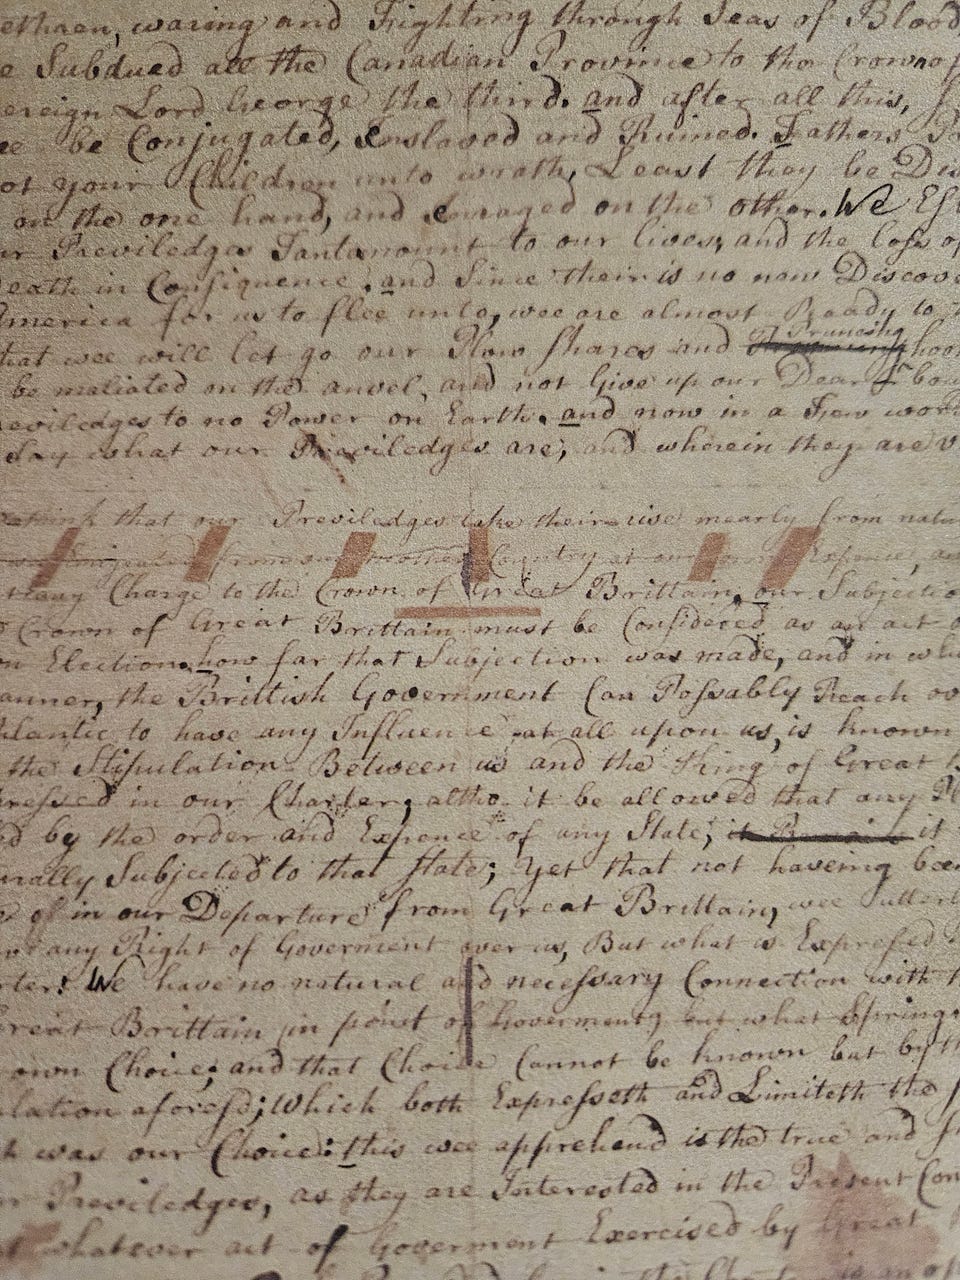 waring and Fighting through Seas of Blood
Subdued all the Canadian Province to the Crown of
Lord George the third. and after all this,
be Conjugated, Enslaved and Ruined. Fathers
not your Children unto wrath, Least they be
on the one hand, and Enraged on the other. We
Previledges Tantamount to our lives, and the loss of
Death in Consiquence. and Since their is no new
America for us to flee unto, wee are almost Ready to
that wee will let go our Plow Shares and Pruneing
be maliated on the anvel, and not Give up our Dear
Previledges to no Power on Earth. and now in a Few
Say what our Previledges are, and wherein they are
think that our Previledges take their rise mearly from
Country at
any Charge to the Crown of Great Brittain. our
Crown of Great Brittain must be Considered as an act
Election. how far that Subjection was made, and in
manner, the Brittish Government Can Possably Reach
to have any Influence at all upon us, is known
the Stipulation Between us and the King of Great
in our Charter; altho it be allowed that any
by the order and Expence of any State; it it
Subjected to that State; yet that not haveing been
of in our Departure from Great Brittain, wee
any Right of Goverment over us, But what is Expressed
We have no natural and necessary Connection with
Great Brittain in point of Goverment, but what Springs
own Choice; and that Choice Cannot be known but by
aforesd; Which both Expresseth and Limiteth the
was our Choice: this wee apprehend is the true and
Previledges, as they are Interested in the Present
whatever act of Goverment Exercised by Great